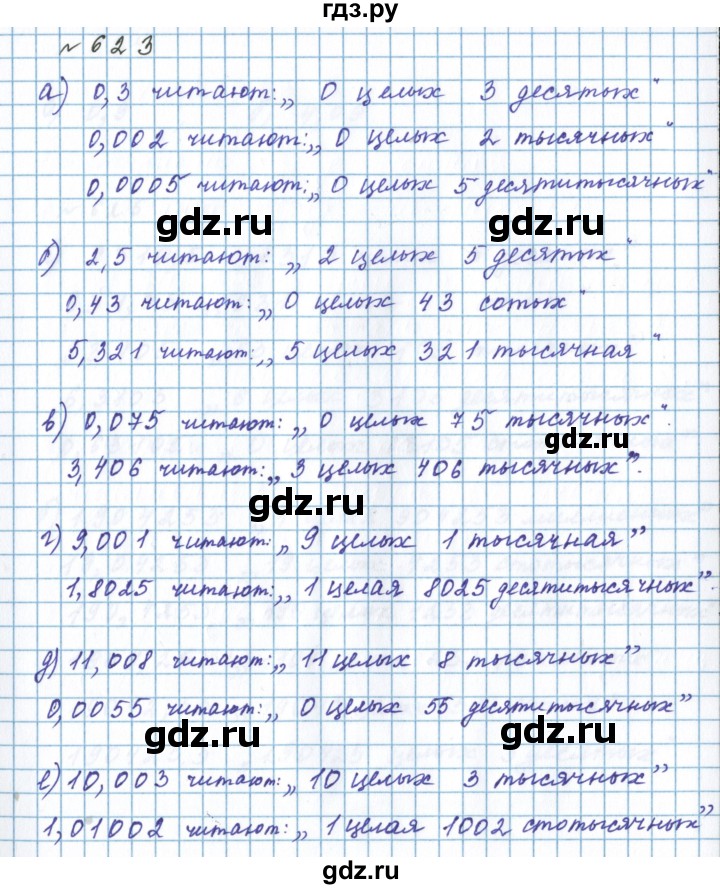 гдз.ру
№ 623
а) 0,3 читают: „ 0 целых 3 десятых "
0,002 читают: „ 0 целых 2 тысячных "
0,0005 читают: „ 0 целых 5 десятитысячных "
gdz.ru gdz.ru
б) 2,5 читают: „ 2 целых 5 десятых "
0,43 читают: „ 0 целых 43 сотых "
5,321 читают: „ 5 целых 321 тысячная "
в) 0,075 читают: „ 0 целых 75 тысячных ".
gdz.ru
3,406 читают: „ 3 целых 406 тысячных ".
gdz.ru
г) 9,001 читают: „ 9 целых 1 тысячная "
1,8025 читают: „ 1 целая 8025 десятитысячных ".
gdz.ru
д) 11,008 читают: „ 11 целых 8 тысячных "
0,0055 читают: „ 0 целых 55 десятитысячных "
gdz.ru gdz.ru
е) 10,003 читают: „ 10 целых 3 тысячных "
1,01002 читают: „ 1 целая 1002 стотысячных "
gdz.ru